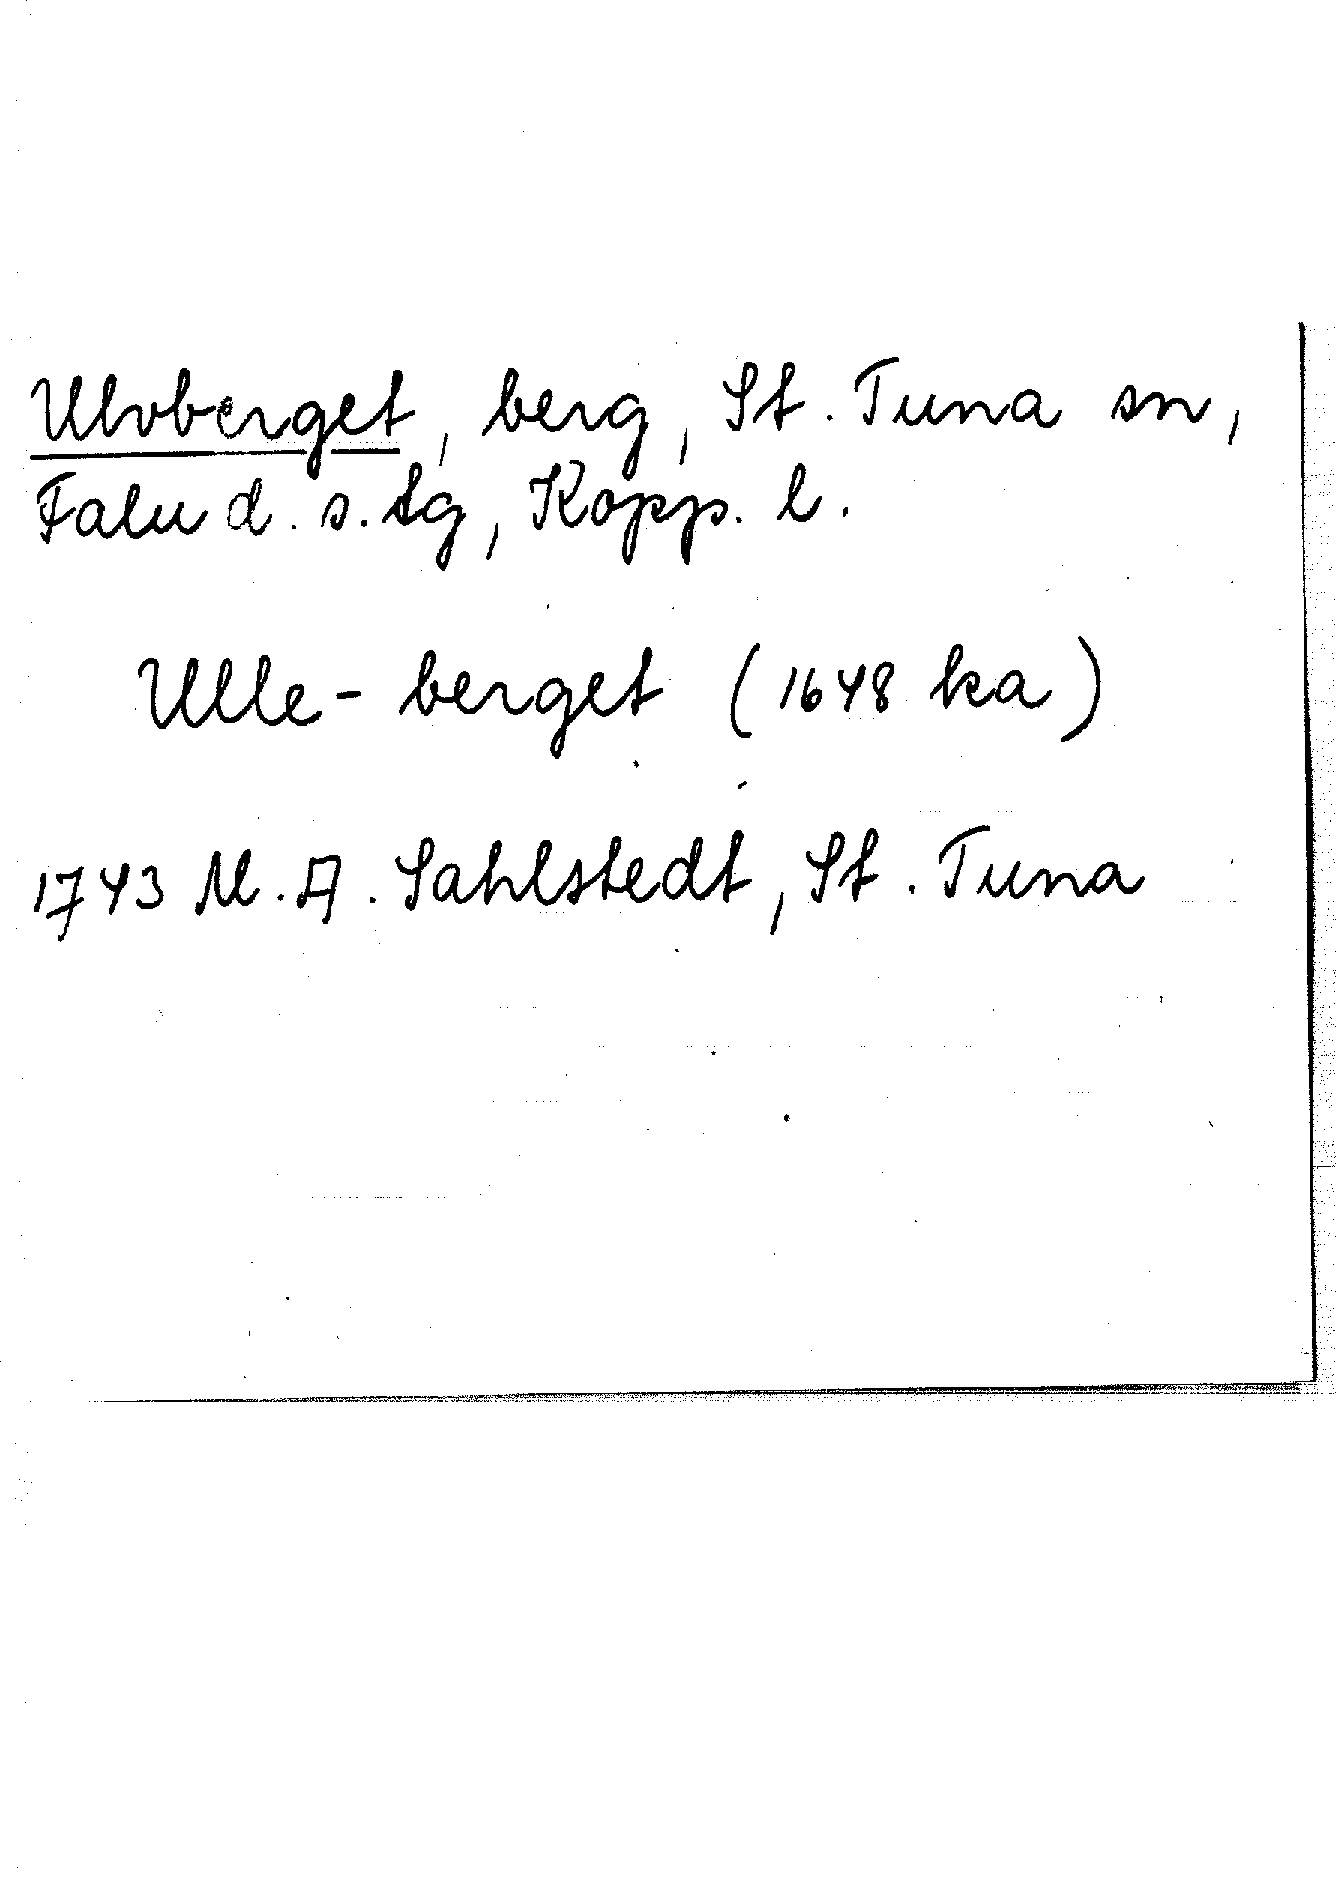 Ulvberget, berg, St. Tuna sn,
Falu d. s. tg, Kopp. l.
Ulle-berget (1648 ka)
1743 M. A. Sahlstedt, St. Tuna